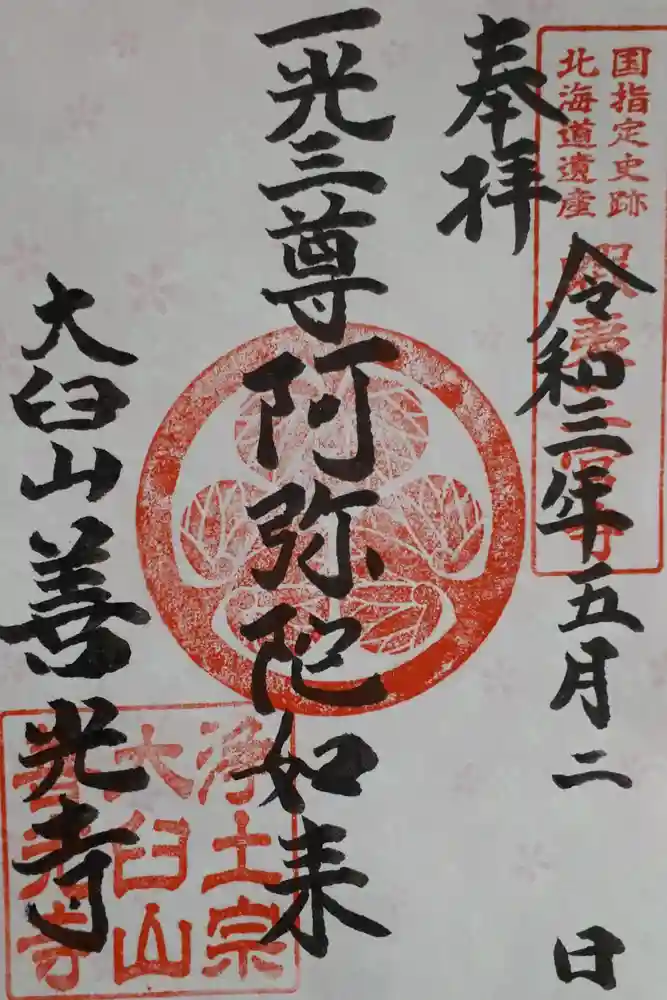 国指定史跡
北海道遺産
奉拝
令和三年五月二日
一光三尊阿弥陀如来
大臼山善光寺
浄土宗
大臼山
善光寺